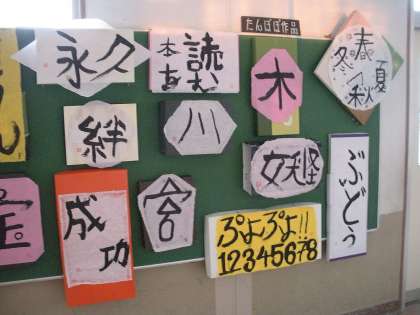 たんぽぽ作品
永久
本を
読む
木
春
夏
秋
冬
絆
川
妖怪
ぶどう
成功
宮
ぷよぷよ!!
12345678